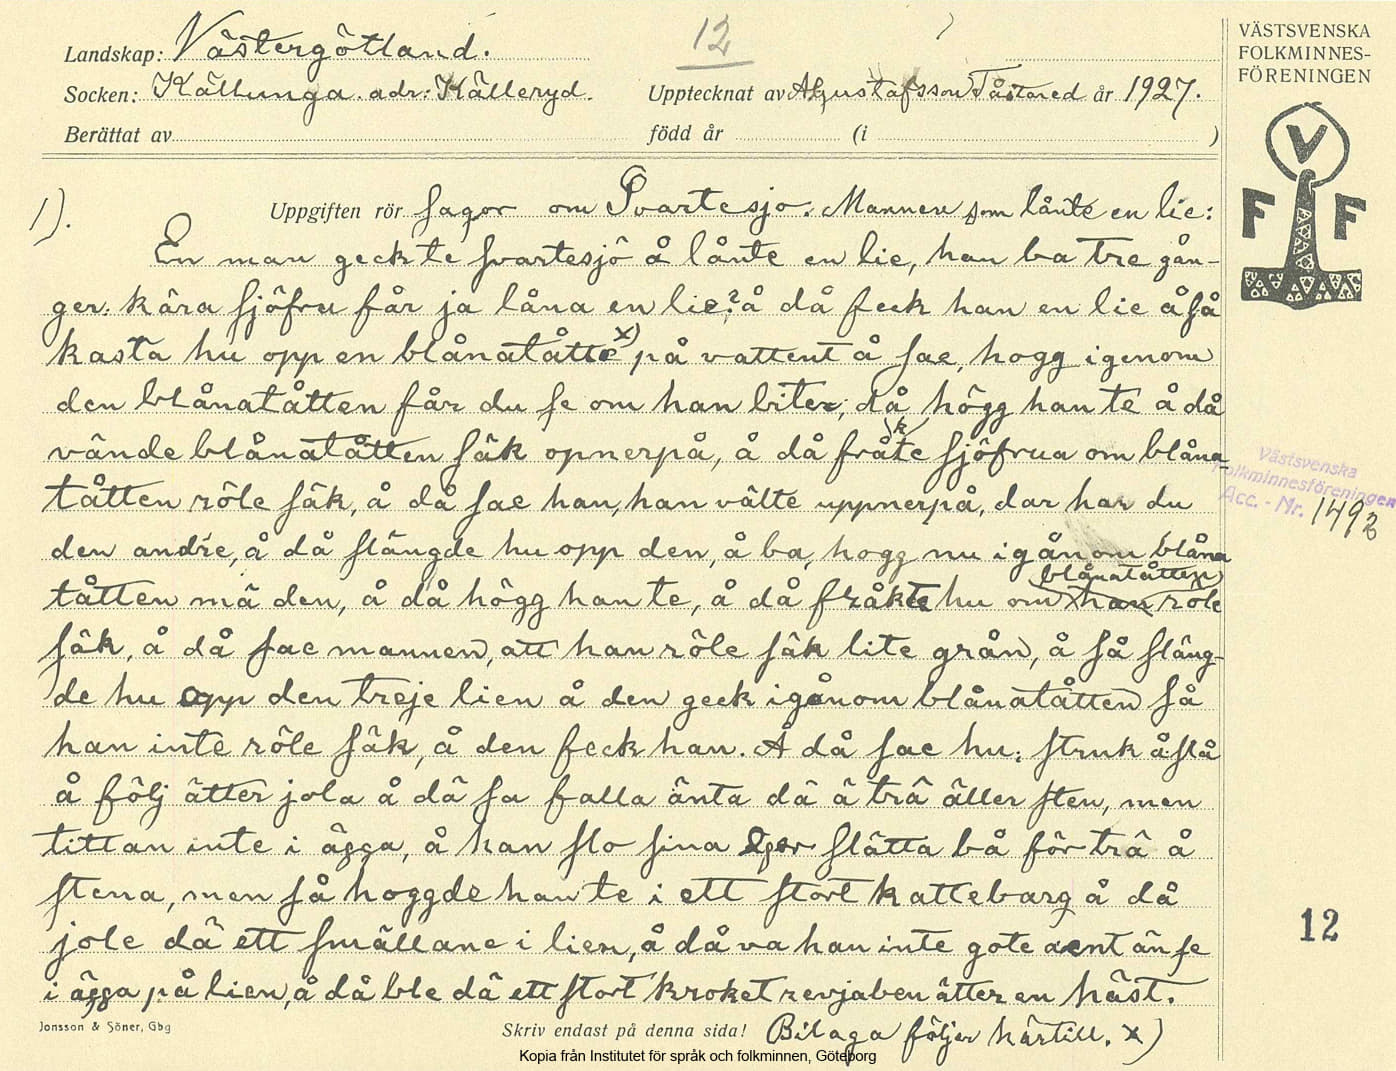 Landskap: Västergötland.
12
VÄSTSVENSKA
FOLKMINNES-
FÖRENINGEN
Socken: Källunga. adr: Källeryd.
Upptecknat av AGustafsson Tåstared år 1927.
Berättat av
född år (i )
V
F F
1).
Uppgiften rör sagor om Svartesjo. Mannen som lånte en lie:
En man geck te svartesjö å lånte en lie, han ba tre gån-
ger: kära sjöfru får ja låna en lie? å då feck han en lie å så
kasta hu opp en blånatåtte x) på vattent å sae, hogg igenom
den blånatåtten får du se om han biter, då högg han te å då
vände blånatåtten säk opnerpå, å då fråkte sjöfrua om blåna-
tåtten röle säk, å då sae han, han välte uppnerpå, dar har du
den andre, å då slängde hu opp den, å ba, hogg nu igånom blåna
tåtten mä den, å då högg han te, å då fråkte hu om han blånatåtten röle
säk, å då sae mannen, att han röle säk lite grån, å så släng-
de hu opp den treje lien å den geck igånom blånatåtten så
han inte röle säk, å den feck han. Å då sae hu; struk å slå
å följ ätter jola å dä sa falla änta dä ä trä äller sten, men
titt an inte i ägga, å han slo sina slätta bå för trä å
stena, men så hoggde han te i ett stort kattebarg å då
jole dä ett smällane i lien, å då va han inte gote aent än se
i ägga på lien, å då ble dä ett stort kroket revjaben ätter en häst.
Västsvenska
Folkminnesföreningen
Acc. - Nr. 1492
12
Jonsson & Söner, Gbg
Skriv endast på denna sida!
Bilaga följer härtill. x)
Kopia från Institutet för språk och folkminnen, Göteborg